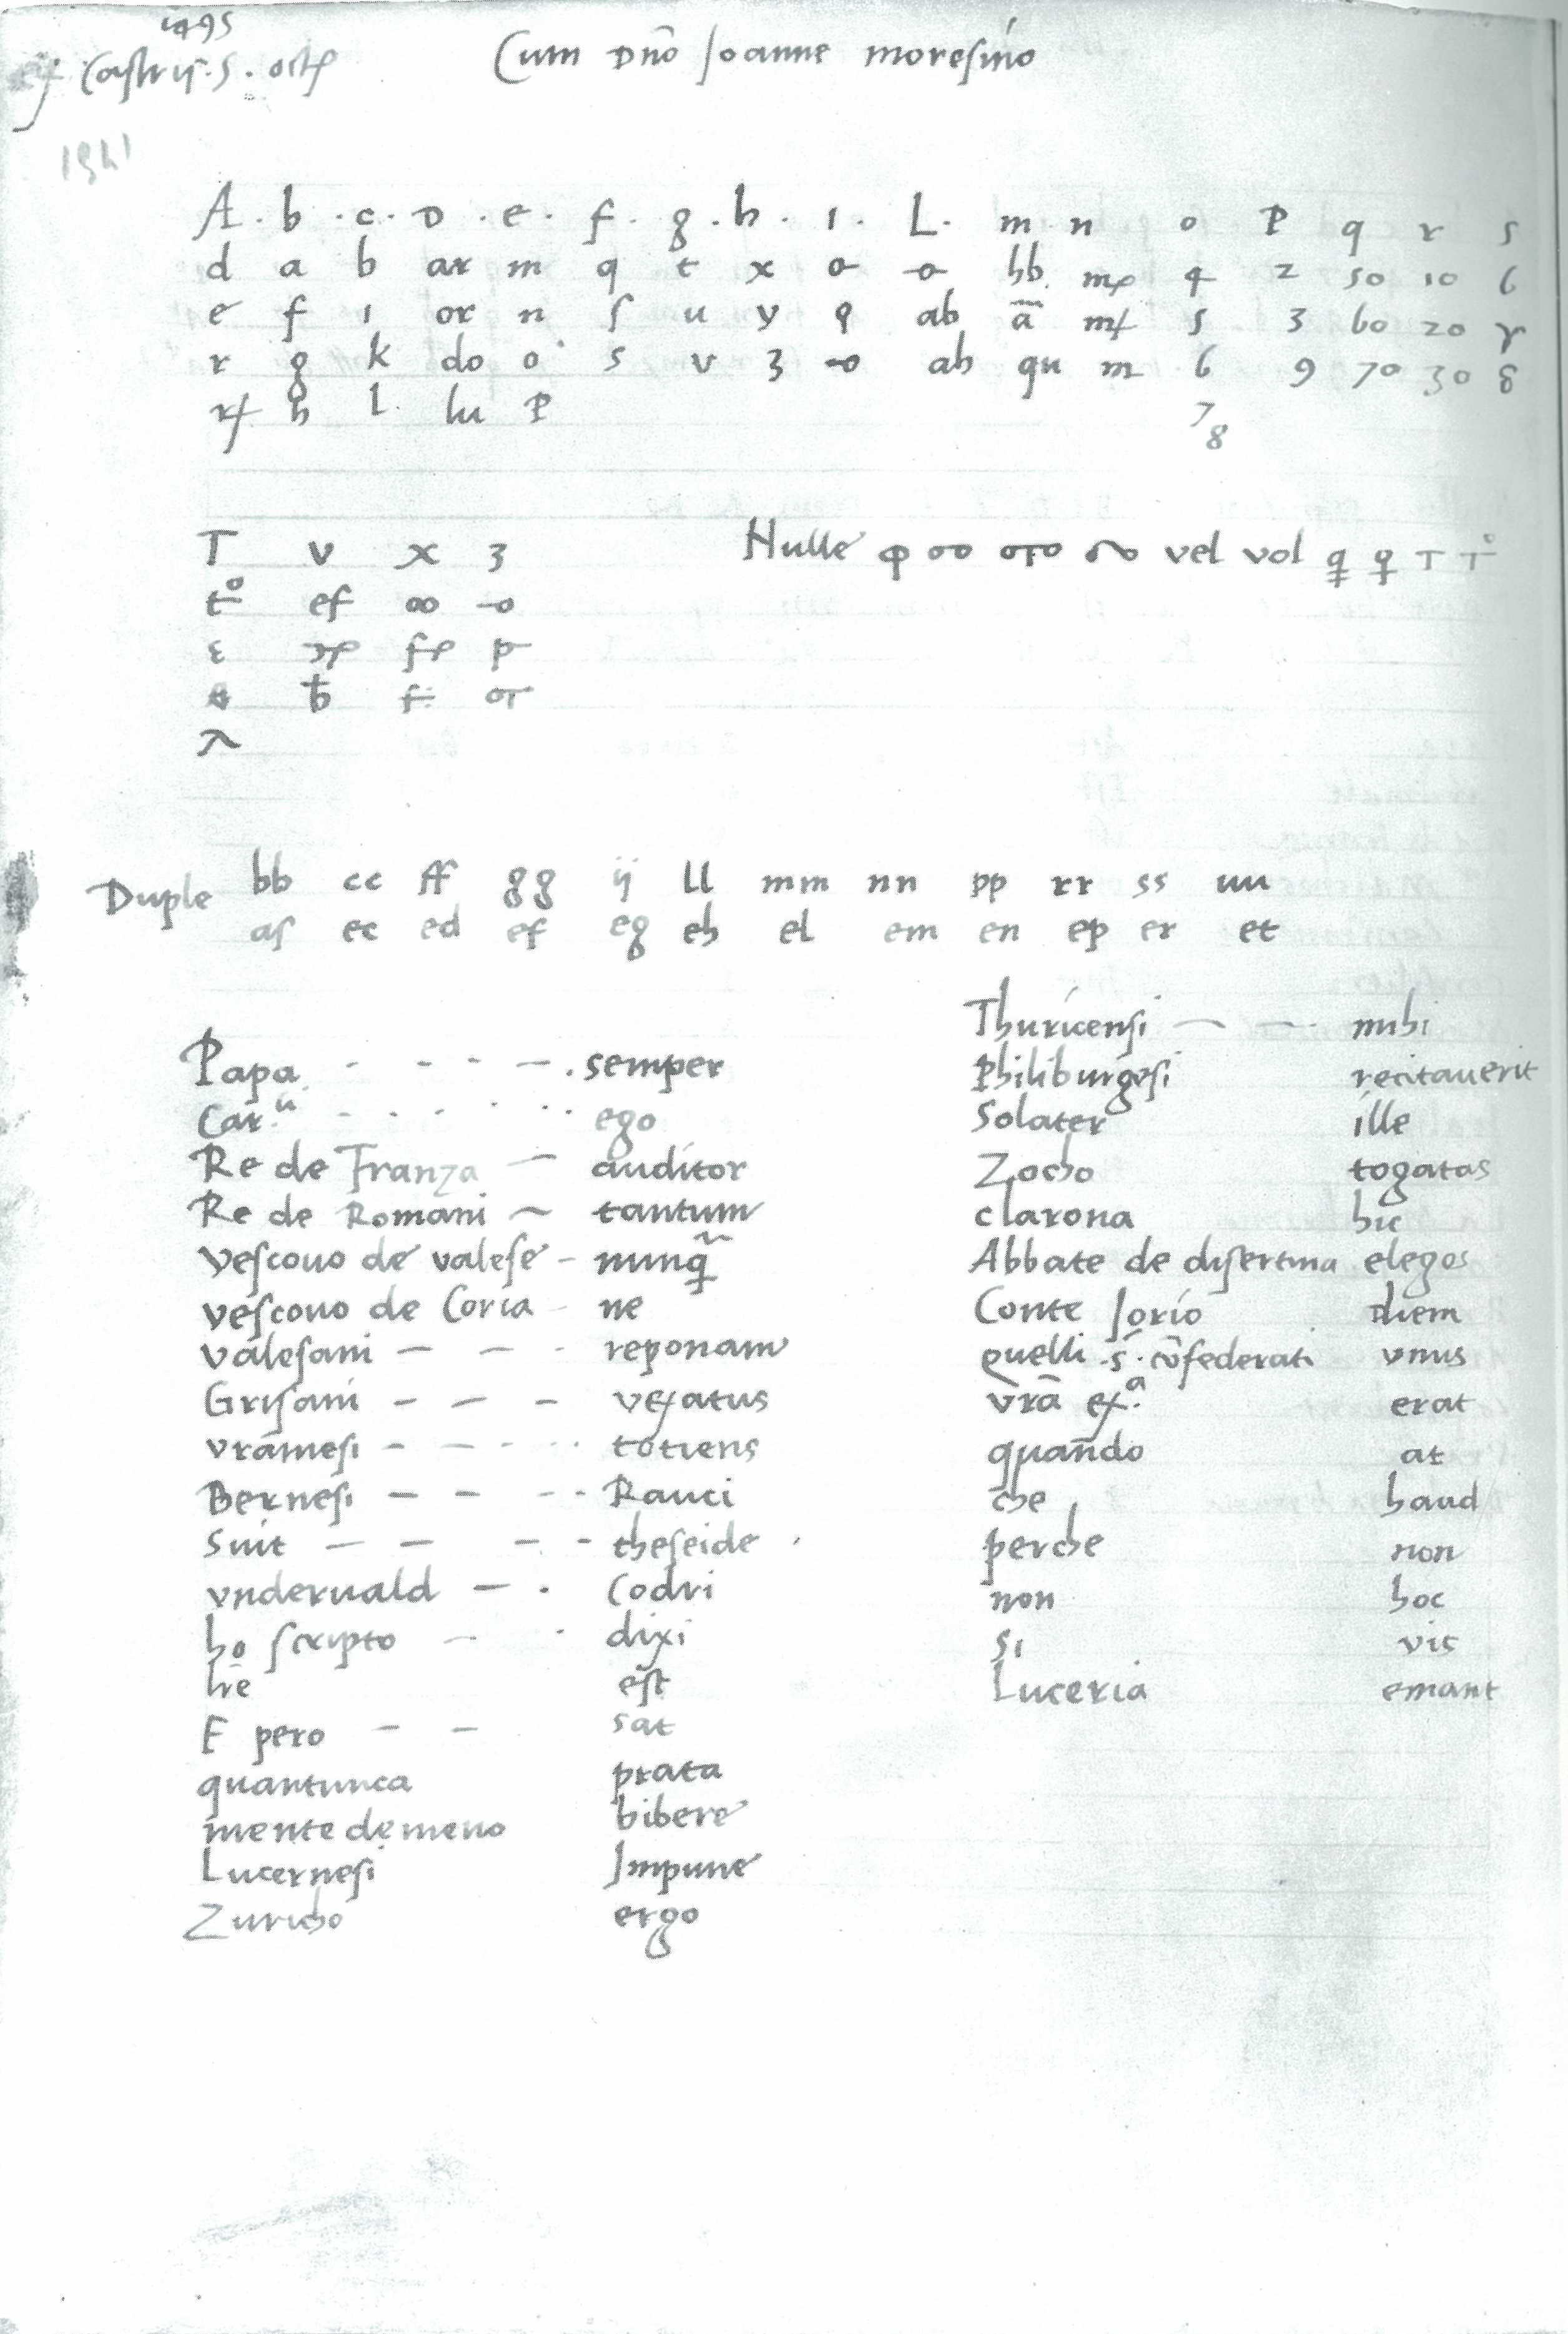 1495
ex Castris . 5 . octb
Cum Dño Joanne moresino
1541
A . b . c . D . e . f . g . h . i . L . m n o P q r s
d a b ar m q t x hh 4 2 50 10 6
e f i or n ſ u y 9 ab ā 5 3 60 20
r g k do o s v 3 ah qu m 6 9 70 30 8
h l lu P 7
8
T v x 3
ef ∞
Nulle vel vol
Duple bb cc ff gg ij ll mm nn pp rr ss uu
af ec ed ef eg eh el em en ep er et
Papa - - - - . semper
Car. ego
Re de Franza — auditor
Re de Romani ~ tantum
vescouo de valese - nunq̃
vescouo de Coria - ne
Valesani — — - reponam
Grisani — — — vexatus
vramesi - - - - totiens
Bernesi — — - - Rauci
Suit — — - - theseide
vnderuald — . Codri
ho scripto — - dixi
hr̄e est
E pero — — sat
quantunca prata
mente de meno bibere
Lucernesi Impune
Zuricho ergo
Thuricensi — — - mihi
Philiburgesi recitauerit
Solater ille
Zocho togatas
clarona hic
Abbate de disertina elegos
Conte Jorio diem
quelli .s. cõfederati vnus
vr̄a ex.a erat
quando at
che haud
perche non
non hoc
si vis
Luceria emant